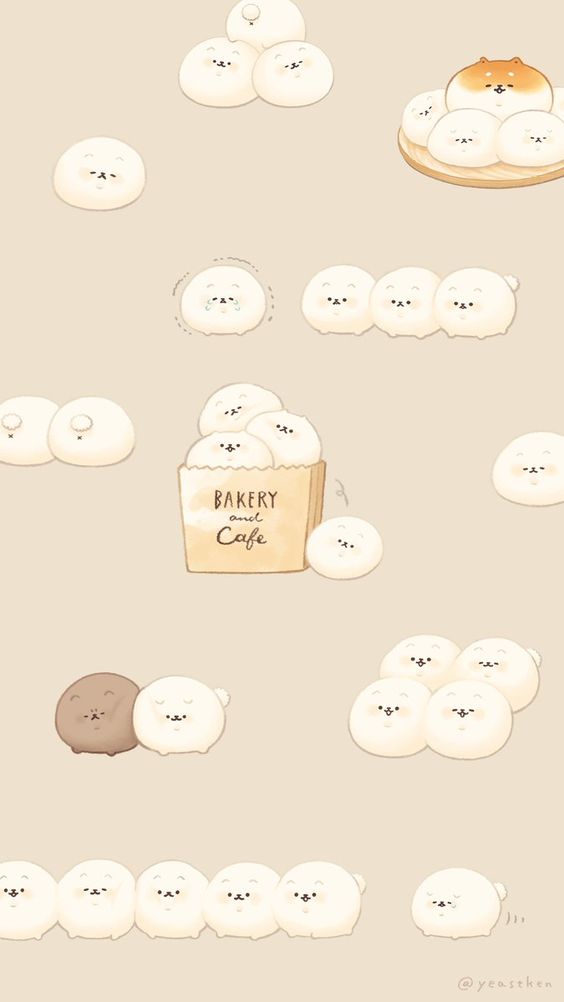 BAKERY
and
Cafe
@yeastken